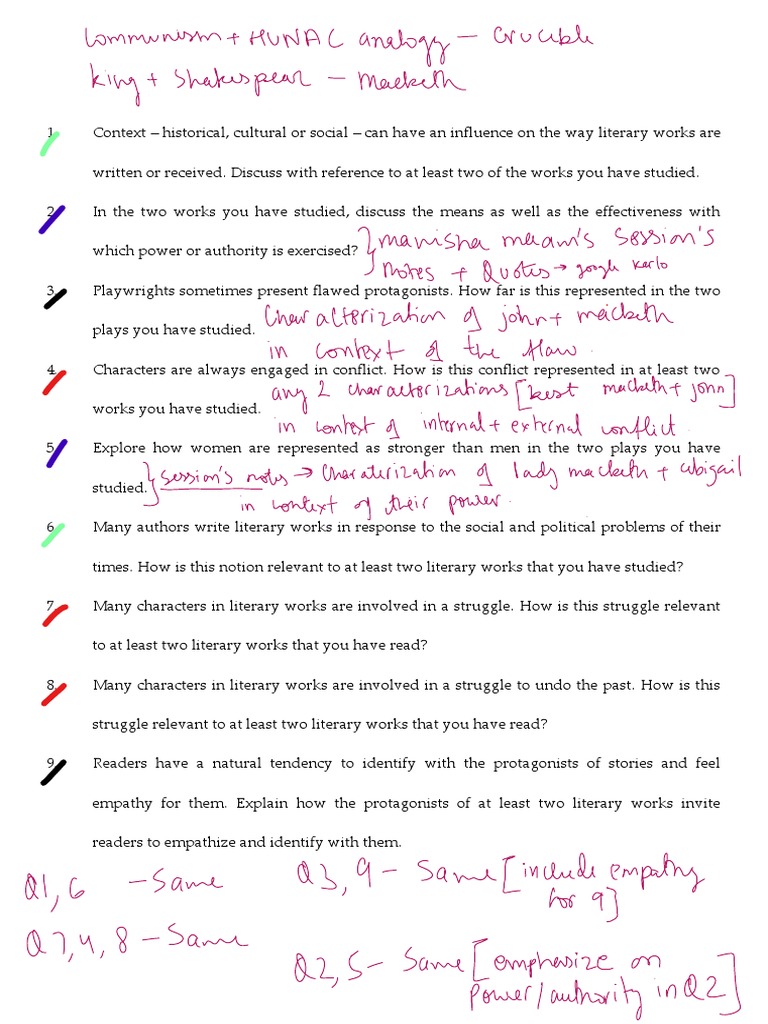 Communism + HUNAC analogy – Crucible
King + Shakespear – Macbeth
1 Context – historical, cultural or social – can have an influence on the way literary works are
written or received. Discuss with reference to at least two of the works you have studied.
2 In the two works you have studied, discuss the means as well as the effectiveness with
which power or authority is exercised? } Manisha maam's Session's
Notes + Quotes → google karlo
3 Playwrights sometimes present flawed protagonists. How far is this represented in the two
plays you have studied. Characterization of john + macbeth
in context of the flaw.
4 Characters are always engaged in conflict. How is this conflict represented in at least two
works you have studied. any 2 characterizations [best macbeth + john]
in context of internal + external conflict.
5 Explore how women are represented as stronger than men in the two plays you have
studied. } Session's notes → Charaterization of lady macbeth + abigail
in context of their power.
6 Many authors write literary works in response to the social and political problems of their
times. How is this notion relevant to at least two literary works that you have studied?
7 Many characters in literary works are involved in a struggle. How is this struggle relevant
to at least two literary works that you have read?
8 Many characters in literary works are involved in a struggle to undo the past. How is this
struggle relevant to at least two literary works that you have read?
9 Readers have a natural tendency to identify with the protagonists of stories and feel
empathy for them. Explain how the protagonists of at least two literary works invite
readers to empathize and identify with them.
Q1,6 – Same
Q3,9 – Same [include empathy
for 9]
Q7,4,8 – Same
Q2,5 – Same [emphasize on
power/authority in Q2]